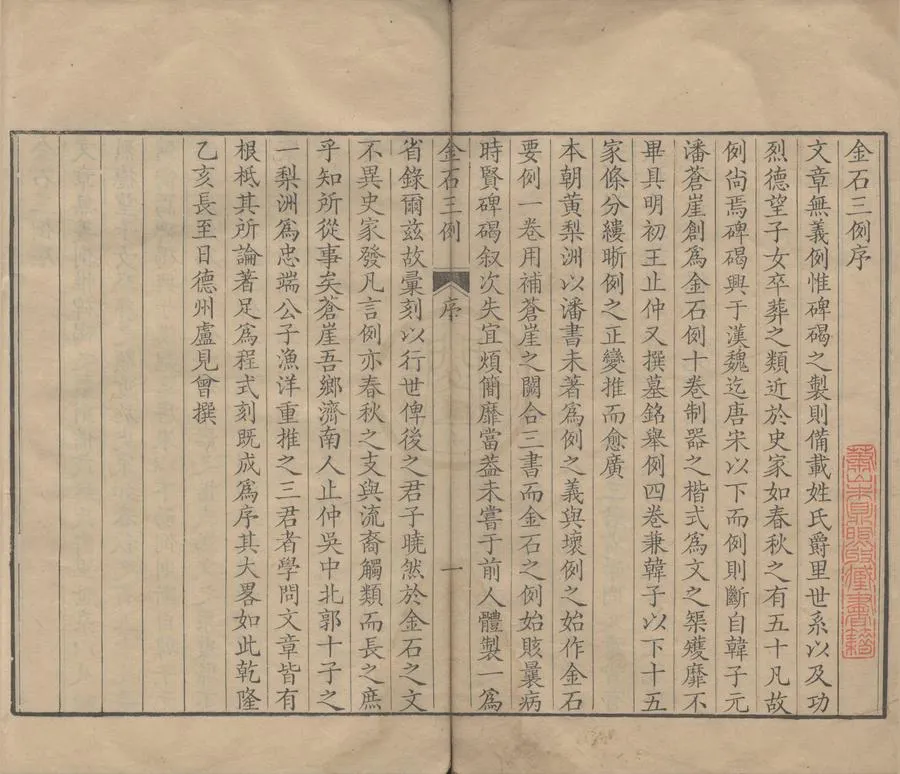 金石三例序
文章無義例惟碑碣之製則備載姓氏爵里世系以及功
烈德望子女卒葬之類近於史家如春秋之有五十凡故
例尚焉碑碣興于漢魏迄唐宋以下而例則斷自韓子元
潘蒼崖創為金石例十卷制器之楷式為文之榘矱靡不
畢具明初王止仲又撰墓銘舉例四卷兼韓子以下十五
家條分縷晰例之正變推而愈廣
本朝黃梨洲以潘書未著為例之義與壞例之始作金石
要例一卷用補蒼崖之闕合三書而金石之例始賅曩病
時賢碑碣叙次失宜煩簡靡當葢未嘗于前人體製一為
金石三例
序
一
省錄爾兹故彙刻以行世俾後之君子曉然於金石之文
不異史家發凡言例亦春秋之支與流裔觸類而長之庶
乎知所從事矣蒼崖吾鄉濟南人止仲吳中北郭十子之
一梨洲為忠端公子漁洋重推之三君者學問文章皆有
根柢其所論著足為程式刻既成為序其大畧如此乾隆
乙亥長至日德州盧見曾撰